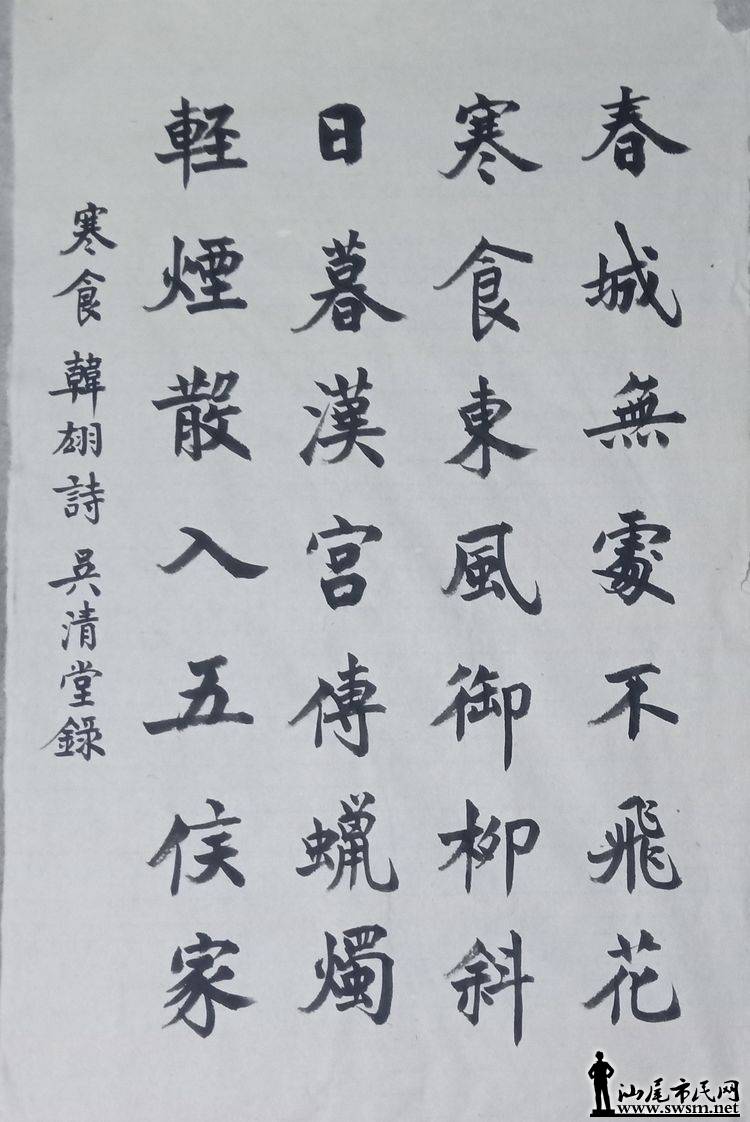 春城無處不飛花
寒食東風御柳斜
日暮漢宫傳蠟燭
輕煙散入五侯家
寒食 韓翃詩 吳清堂錄
汕尾市民网
www.swsm.net